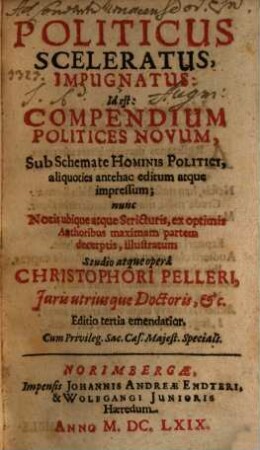 POLITICUS
SCELERATUS,
3323.
IMPUGNATUS:
Id est:
COMPENDIUM
POLITICES NOVUM,
Sub Schemate HOMINIS POLITICI,
aliquoties antehac editum atque
impressum;
nunc
Notis ubique atque Stricturis, ex optimis
Authoribus maximam partem
decerptis, illustratum
Studio atque operâ
CHRISTOPHORI PELLERI,
Juris utriusque Doctoris, &c.
Editio tertia emendatior.
Cum Privileg. Sac. Cæs. Majest. Speciali.
NORIMBERGÆ,
Impensis JOHANNIS ANDREÆ ENDTERI,
& WOLFGANGI JUNIORIS
Hæredum.
ANNO M. DC. LXIX.